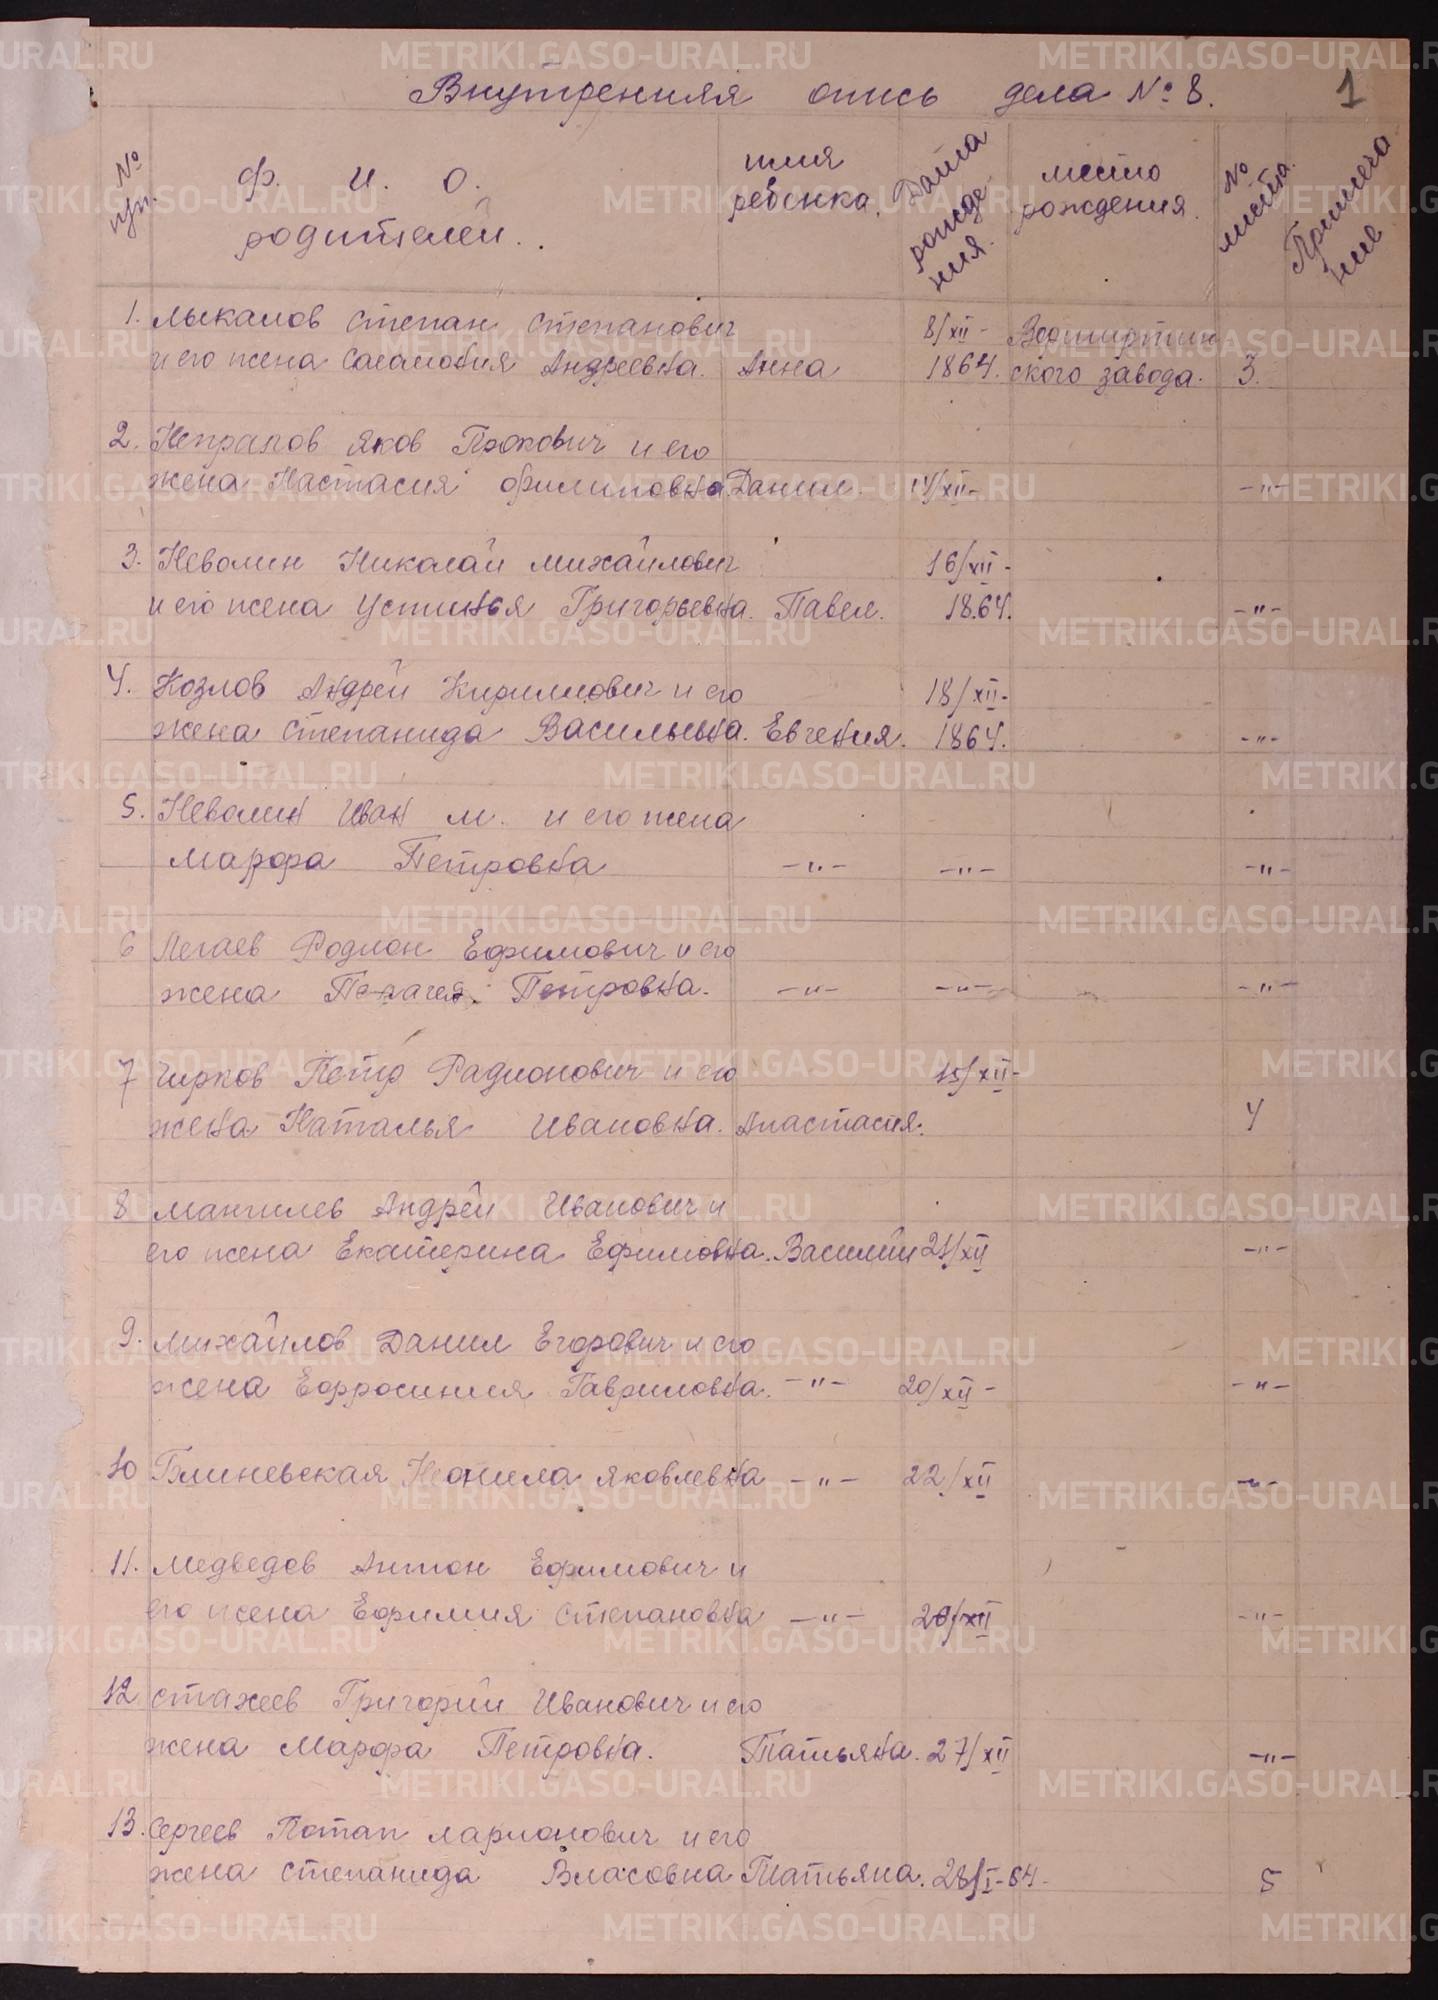 Внутренняя опись дела № 8. 1
№ п/п. Ф. И. О. родителей.. имя ребенка. Дата рождения. место рождения. № листа. Примечание
1. Лыкасов Степан Степанович 8/XII-
и его жена Соломония Андреевна. Анна 1864. ского завода. 3.
2. Яков и его
жена Настасия Филиповна Данил. /XII- -"-
3. Неволин Николай Михайлович 16/XII-
и его жена Устинья Григорьевна. Павел. 1864. -"-
4. Козлов Андрей Кирилович и его 18/XII-
жена Степанида Васильевна. Евгения. 1864. -"-
5. Неволин Иван М. и его жена
Марфа Петровна -"- -"- -"-
6 Легаев Родион Ефимович и его
жена Пелагея. Петровна. -"- -"- -"-
7 Чирков Петр Радионович и его 15/XII-
жена Наталья Ивановна. Анастасия. 4
8 Мангилев Андрей Иванович и
его жена Екатерина Ефимовна. Василий 21/XII -"-
9. Михайлов Данил Егорович и его
жена Ефросиния Гавриловна. -"- 20/XII- -"-
10 Блиневская Неонила Яковлевна -"- 22/XII -"-
11. Медведов Антон Ефимович и
его жена Ефимия Степановна -"- /XII -"-
12 Стахеев Григорий Иванович и его
жена Марфа Петровна. Татьяна. 27/XII -"-
13. Сергеев Потап Ларионович и его
жена Степанида Власовна Татьяна. 28/I-64. 5
METRIKI.GASO-URAL.RU